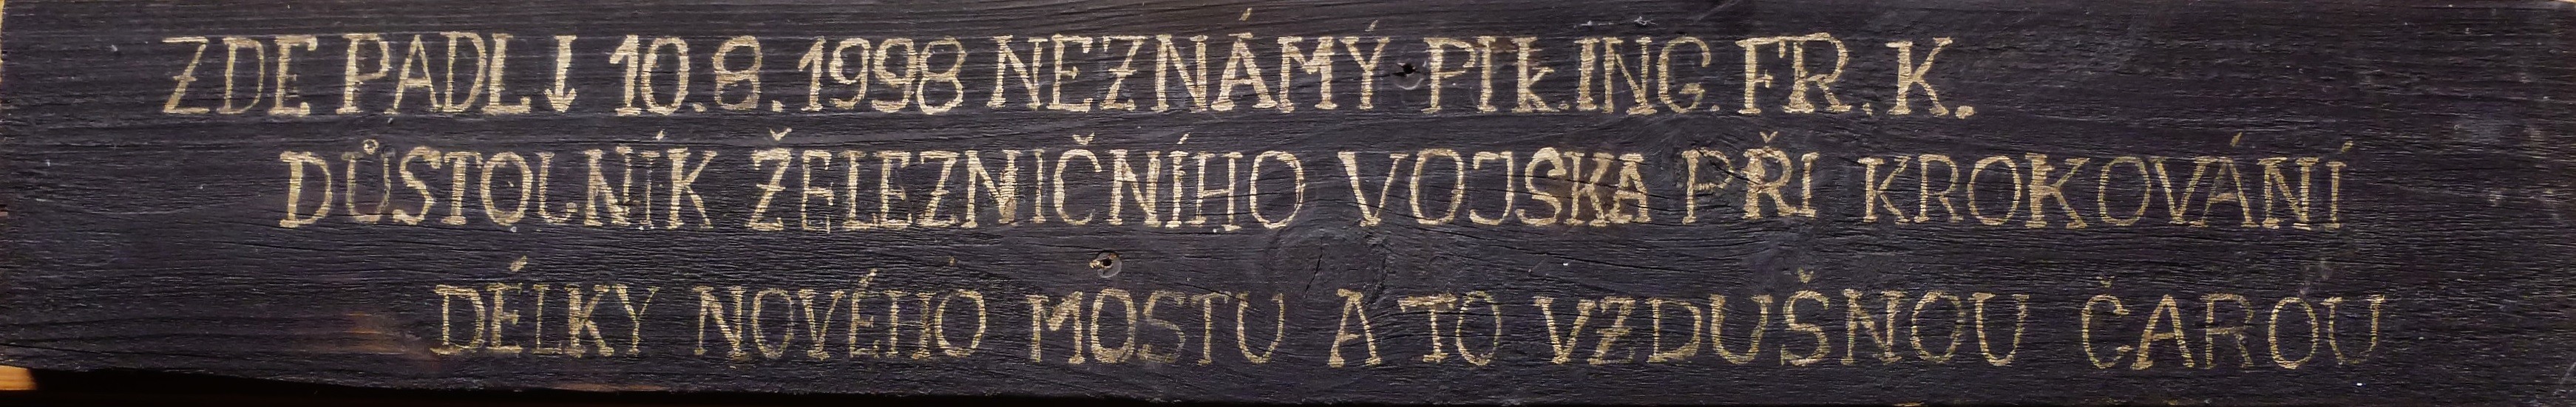 ZDE PADL ↓ 10.8.1998 NEZNÁMÝ PLK.ING. FR. K.
DŮSTOLNÍK ŽELEZNIČNÍHO VOJSKA PŘI KROKOVÁNÍ
DÉLKY NOVÉHO MOSTU A TO VZDUŠNOU ČAROU